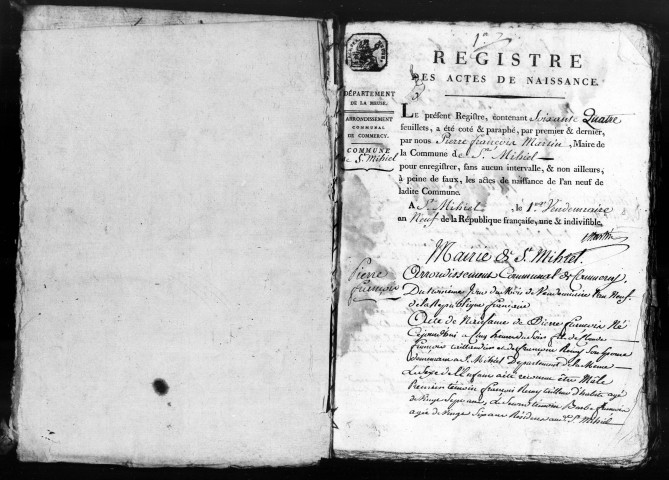 1er
REGISTRE
DES ACTES DE NAISSANCE.
DÉPARTEMENT
DE LA MEUSE.
ARRONDISSEMENT
COMMUNAL
DE COMMERCY.
COMMUNE
de St. Mihiel
LE présent Registre, contenant Soixante Quatre
feuillets, a été coté & paraphé, par premier & dernier,
par nous Pierre François Martin, Maire de
la Commune de St. Mihiel
pour enregistrer, sans aucun intervalle, & non ailleurs,
à peine de faux, les actes de naissance de l'an neuf de
ladite Commune.
A St. Mihiel, le 1er Vendemiaire
an Neuf de la République française, une & indivisible.
Martin
Mairie de St. Mihiel.
Arrondissement Communal de Commercy
Pierre
François
Du troisieme Jour du Mois de Vendemiaire l'an Neuf
de la Republique française
Acte de Naissance de Pierre François Né
à Cinq heures du Soir fils de
François et de françoise Remy Son Epouse
a St. Mihiel Departement de la Meuse
Le Sexe de L'Enfant a été reconnu être Mâle
Premier témoin François Remy tailleur d'habits agé
de Vingt Sept ans, Le Second témoin Barbe
agée de Vingt Six ans Résidens au dt St. Mihiel